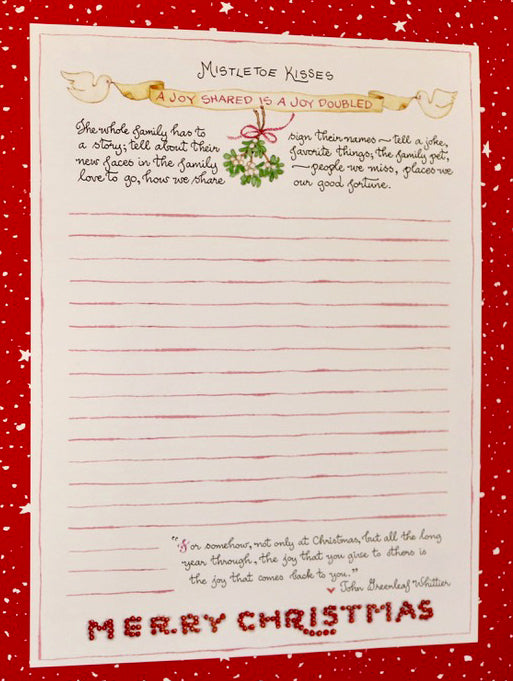 Mistletoe Kisses
A JOY SHARED IS A JOY DOUBLED
The whole family has to
a story; tell about their
new faces in the family
love to go, how we share
sign their names — tell a joke,
favorite things; the family pet,
— people we miss, places we
our good fortune.
"For somehow, not only at Christmas, but all the long
year through, the joy that you give to others is
the joy that comes back to you."
John Greenleaf Whittier
MERRY CHRISTMAS